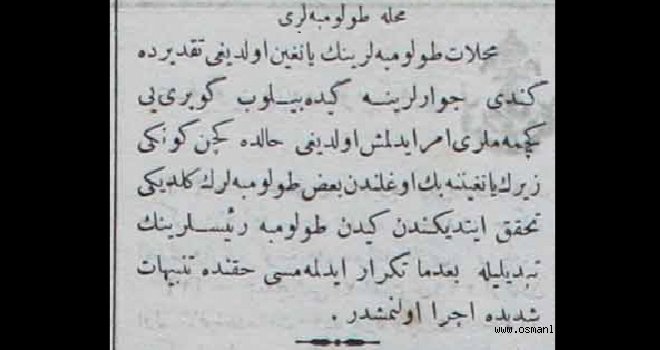 محله طولومبه لری
محلات طولومبه لرینك یانغین اولدیغی تقدیرده
كندی جوارلرینه كیده بیلوب كوپری یی
كچمه ملری امر ایدلمش اولدیغی حالده كچن كونكی
زیرك یانغیننه بك اوغلندن بعض طولومبه لرك كلدیكی
تحقق ایتدیكندن كیدن طولومبه رئیسلرینك
تبدیلیله بعدما تكرار ایدلمه مسی حقنده تنبیهات
شدیده اجرا اولنمشدر .
www.osmanl